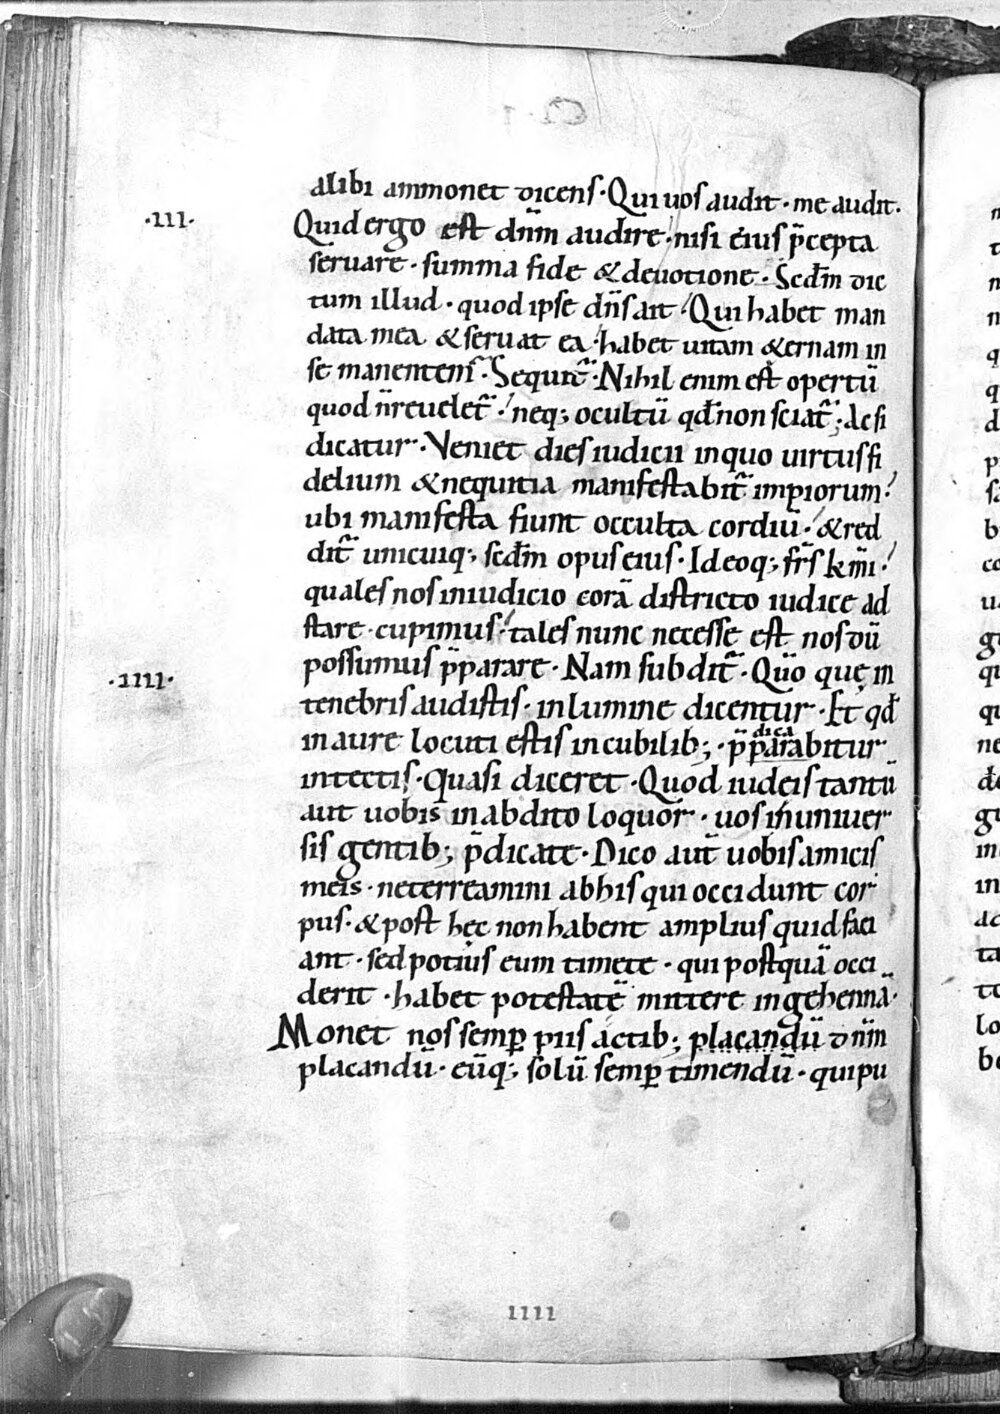 alibi ammonet dicens · Qui uos audit · me audit ·
·III· Quid ergo est dnm̄ audire · nisi eius p̄cepta
seruare · summa fide & deuotione · Scdm̄ dic
tum illud · quod ipse dn̄s ait · Qui habet man
data mea & seruat ea · habet uitam &ernam in
se manentem · Sequit̃ · Nihil enim est opertū
quod n̄ reuelet̃ · neq; ocultū qđ non sciat̃ ; Ac si
dicatur · Veniet dies iudicii in quo uirtus fi
delium & nequitia manifestabit̃ impiorum ·
ubi manifesta fiunt occulta cordiū · & red
dit̃ unicuiq; scdm̄ opus eius · Ideoq; frs̄ km̄i ·
quales nos in iudicio corā districto iudice ad
stare cupimus · tales nunc necesse est nos dū
possumus p̄parare · Nam subdit̃ · Qūo quę in
·IIII· tenebris audistis · in lumine dicentur · Et qđ
in aure locuti estis in cubilib; · p̄parabitur
dica
in tectis · Quasi diceret · Quod iudeis tantū
aut uobis in abdito loquor · uos in uniuer
sis gentib; p̄dicate · Dico aut̄ uobis amicis
meis · ne terreamini ab his qui occidunt cor
pus · & post hęc non habent amplius quid faci
ant · sed potius eum timete · qui postquā occi
derit · habet potestatē mittere in gehennā ·
Monet nos semꝑ piis actib; placandū dnm̄
placandū · eūq; solū semꝑ timendū · qui pu
IIII